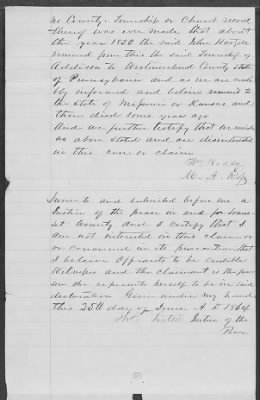 no County, Township or Church record
thereof was ever made that about
the year 1850 the said John Harper
moved from the said Township of
Addison to Westmoreland County State
of Pennsylvania and as we are cred-
ibly informed and believe moved to
the State of Missouri or Kansas and
there died some years ago
And we further testify that we reside
as above stated and are disinterested
in this case or claim
Wm
M. A.
Sworn to and subscribed before me a
Justice of the peace in and for Somer
set County and I certify that I
am not interested in this claim or
or concerned in its prosecution that
I believe Affiants to be credible
Witnesses and the claimant is the per
son she represents herself to be in said
declaration Given under my hand
this 25th day of June A D 1864
Justice of the
Peace